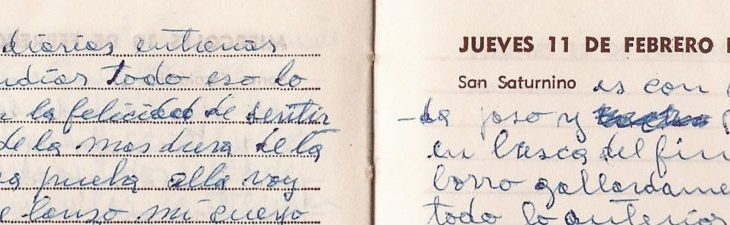 diarias entrenas
ndias todo eso lo
n la felicidad de sentir
de la mas dura de la
a pueba alla voy
e lanzo mi cuerpo
JUEVES 11 DE FEBRERO
San Saturnino es con
-La joso y
en busca del fin
borro gallardame
todo lo anterior